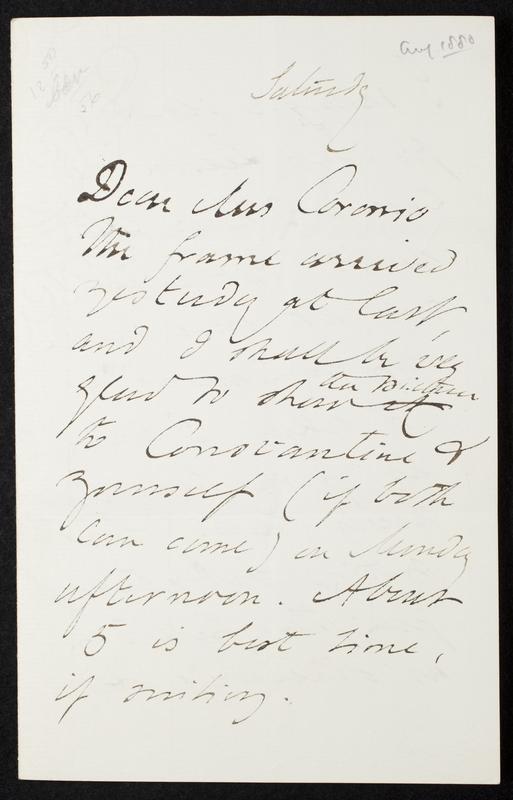 Aug 1880
Saturday
Dear Mrs Coronio
The frame arrived
yesterday at last,
and I shall be very
glad to show it the picture
to Constantine &
yourself (if both
can come) on Monday
afternoon. About
5 is best time,
if suiting.